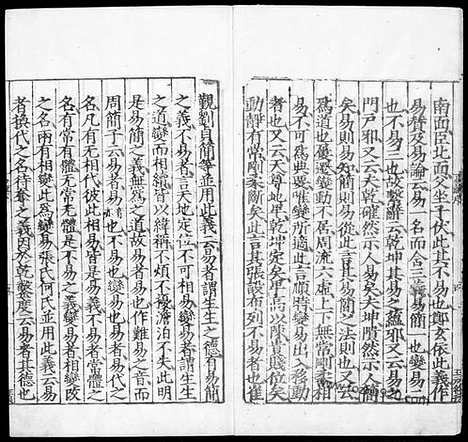 南面臣北面父坐子伏此其不易也鄭玄依此義作
易賛及易論云易一名而含三義易簡一也變易二
也不易三也故繫辭云乾坤其易之蘊邪又云易之
門戶邪又云夫乾確然示人易矣夫坤隤然示人簡
矣易則易知簡則易從此言其易簡之法則也又云
爲道也屢遷變動不居周流六虛上下无常剛柔相
易不可爲典要唯變所適此言順時變易出入移動
者也又云天尊地卑乾坤定矣卑高以陳貴賤位矣
動靜有常剛柔斷矣此言其張設布列不易者也崔
覲劉貞簡等並用此義云易者謂生生之德有易簡
之義不易者言天地定位不可相易變易者謂生生
之道變而相續皆以緯稱不煩不擾澹泊不失此明
是易簡之義無爲之道故易者易也作難易之音而
周簡子云易者易也不易也變易也易者易代之
名凡有无相代彼此相易皆是易義不易者常體之
名有常有體无常无體是不易之義變易者相變改
之名兩有相變此爲變易張氏何氏並用此義云易
者換代之名待奪之義因於乾鑿度云易者其德也